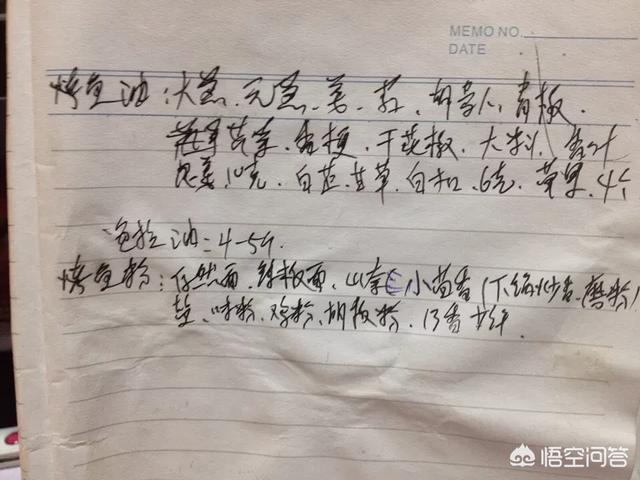 MEMO NO.
DATE
烤鱼油:大葱、元葱、姜、胡萝卜、青椒
芹、香 、干花椒、大料、香叶
良姜10克、白芷、甘草、白扣、6克、草果、4个
色拉油:4-5斤.
烤鱼粉:孜然面、辣椒面、 小茴香(下锅炒香、磨粉)
盐、味粉、鸡粉、胡椒粉、13香少许.
悟空问答